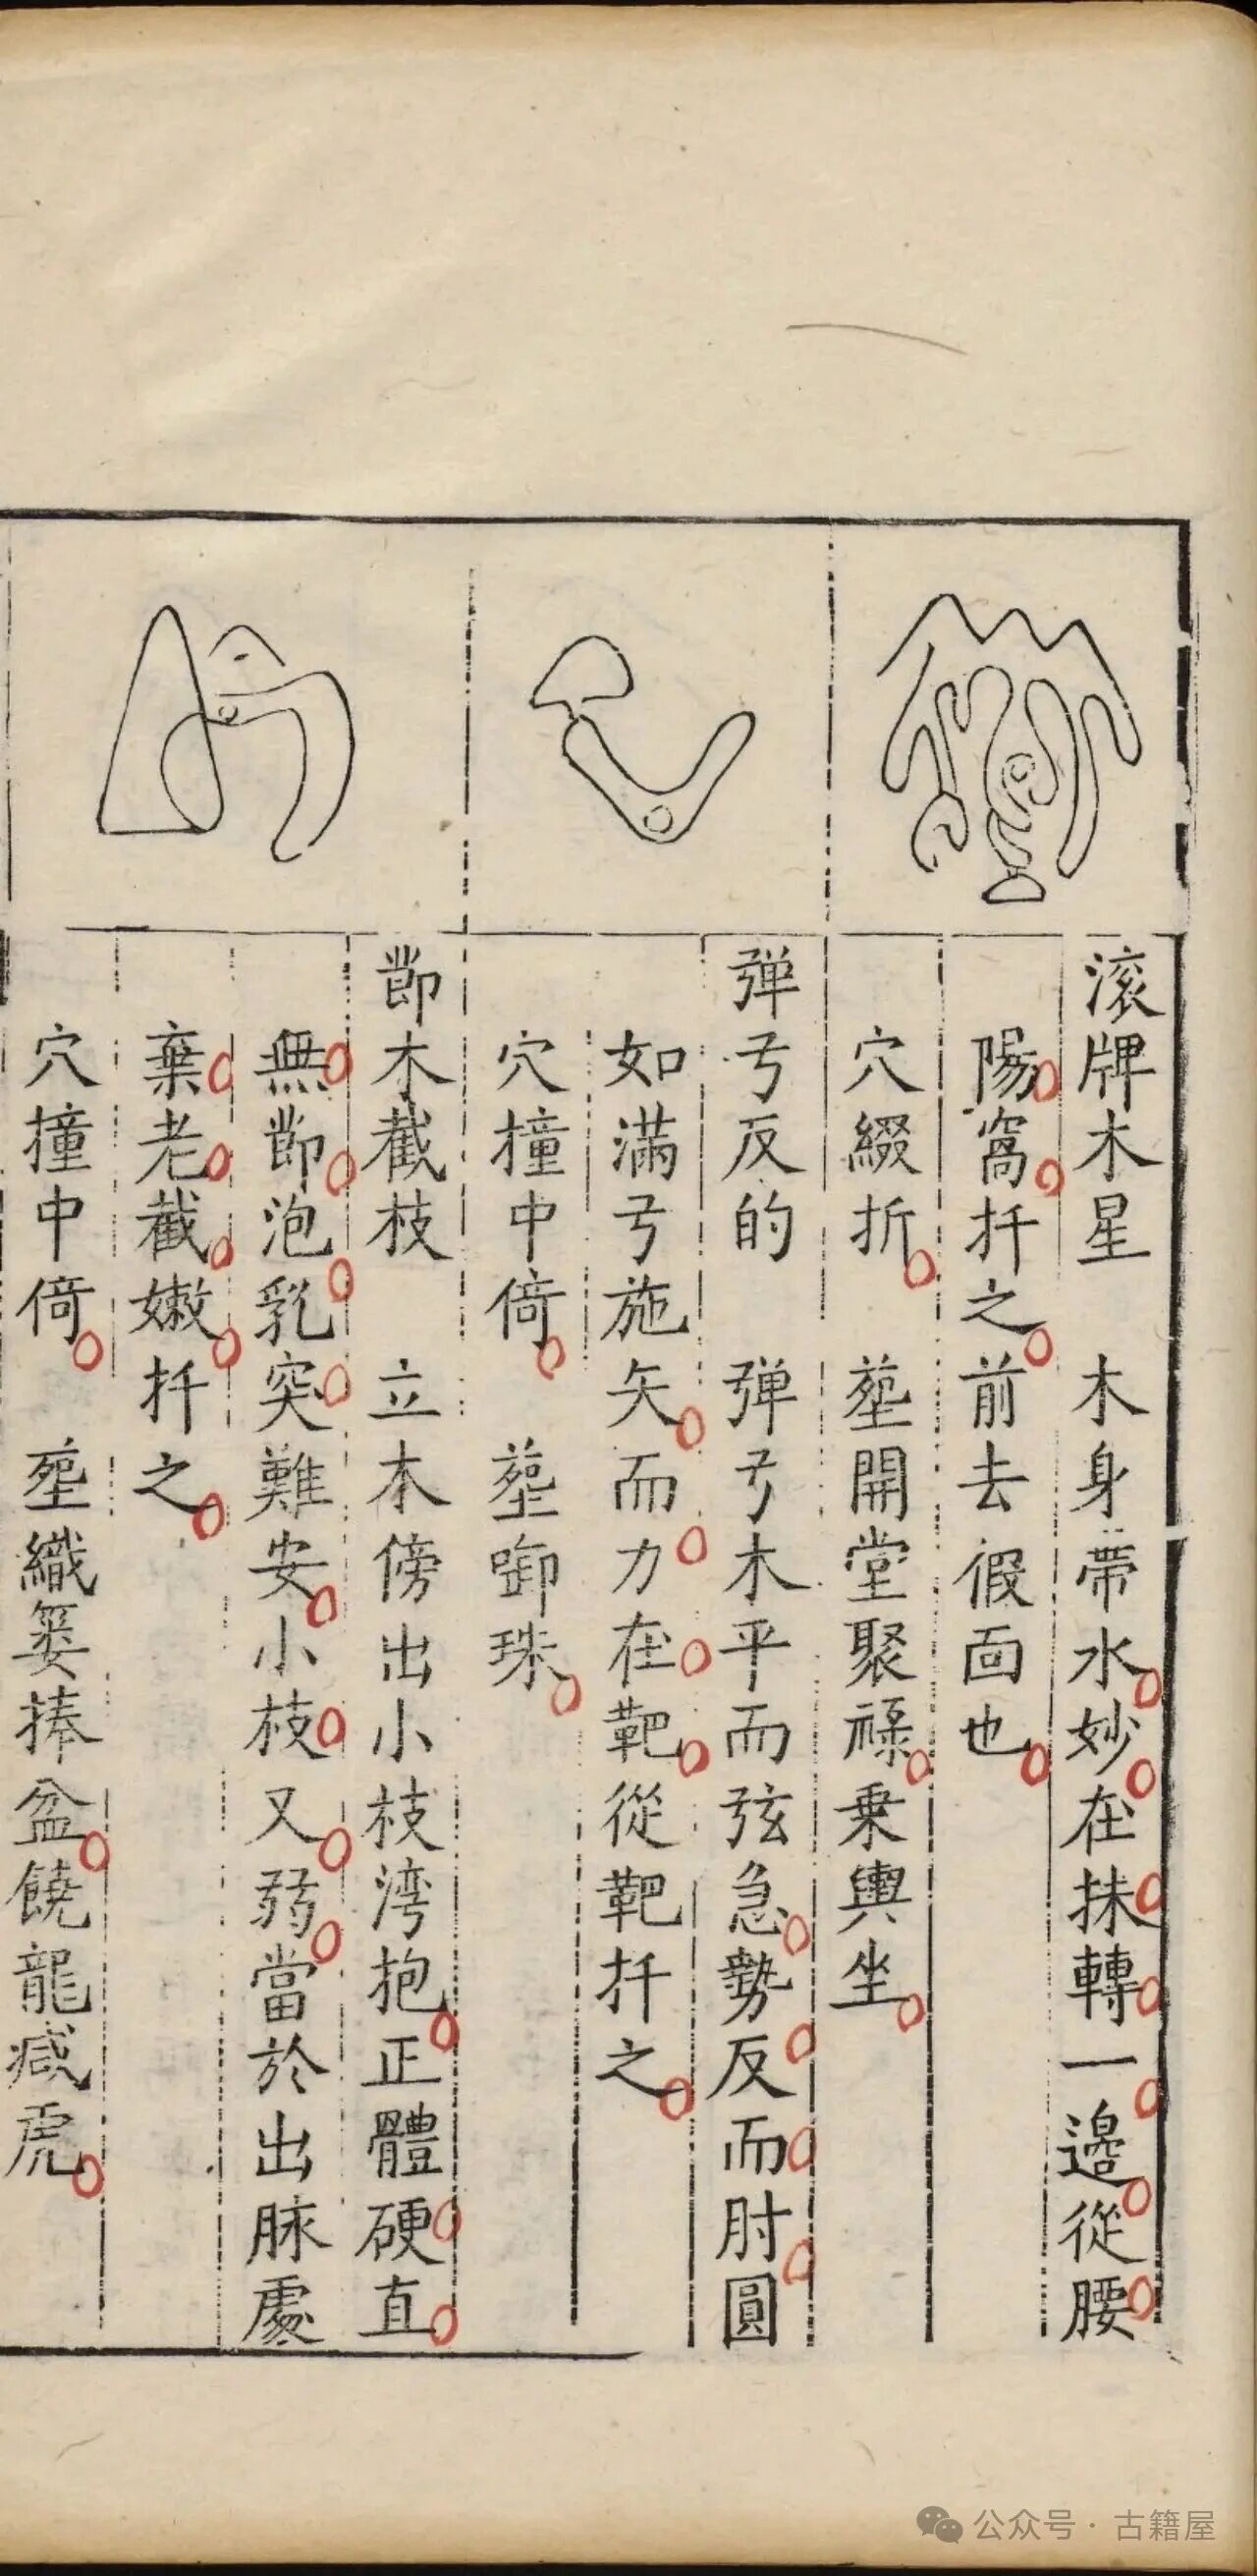 滚牌木星　木身帶水妙在抹轉一邊從腰
陽窩扦之前去假面也
穴綴折　塟開堂聚祿乗輿坐
弹弓反的　弹弓木平而弦急勢反而肘圓
如滿弓施矢而力在靶從靶扦之
穴撞中倚　塟啣珠
節木截枝　立木傍出小枝湾抱正體硬直
無節泡乳突難安小枝又弱當於出脉處
棄老截嫩扦之
穴撞中倚　塟織蔞捧盆饒龍减虎
公众号·古籍屋